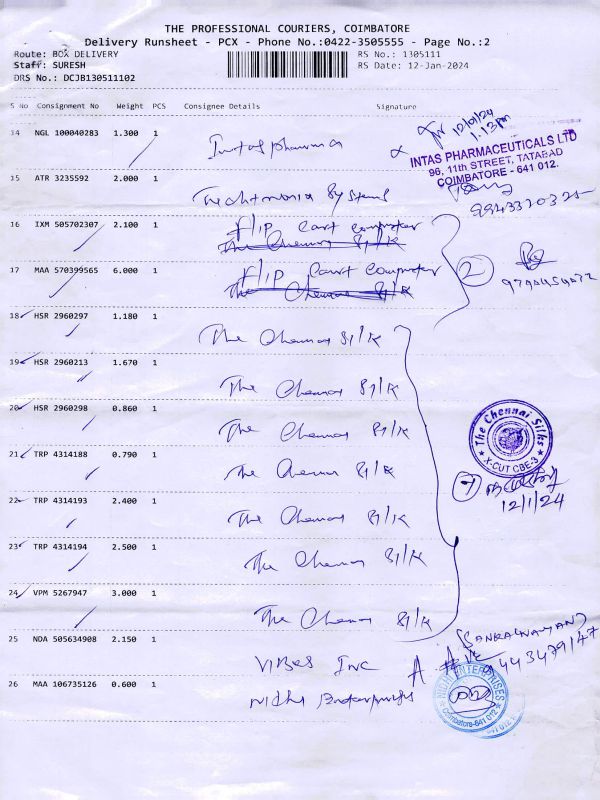 THE PROFESSIONAL COURIERS, COIMBATORE
Delivery Runsheet - PCX - Phone No.:0422-3505555 - Page No.:2
Route: BOX DELIVERY
RS No.: 1305111
Staff: SURESH
RS Date: 12-Jan-2024
DRS No.: DCJB130511102
S No Consignment No Weight PCS Consignee Details Signature
14 NGL 100040283 1.300 1 Intas pharma
12/01/24
1.13pm
INTAS PHARMACEUTICALS LTD
96, 11th STREET, TATABAD
COIMBATORE - 641 012.
15 ATR 3235592 2.000 1 Systems
16 IXM 505702307 2.100 1 Flip Cart Computer
The Chennai Silk
17 MAA 570399565 6.000 1 Flip Cart Computer
The Chennai Silk
2
18 HSR 2960297 1.180 1 The Chennai Silk
19 HSR 2960213 1.670 1 The Chennai Silk
20 HSR 2960298 0.860 1 The Chennai Silk
The Chennai Silks
X-CUT CBE-3
21 TRP 4314188 0.790 1 The Chennai Silk
7
12/1/24
22 TRP 4314193 2.400 1 The Chennai Silk
23 TRP 4314194 2.500 1 The Chennai Silk
24 VPM 5267947 3.000 1 The Chennai Silk
25 NDA 505634908 2.150 1 Vibes Inc
26 MAA 106735126 0.600 1 Nidhi Enterprises
NIDHI ENTERPRISES
Coimbatore-641 012